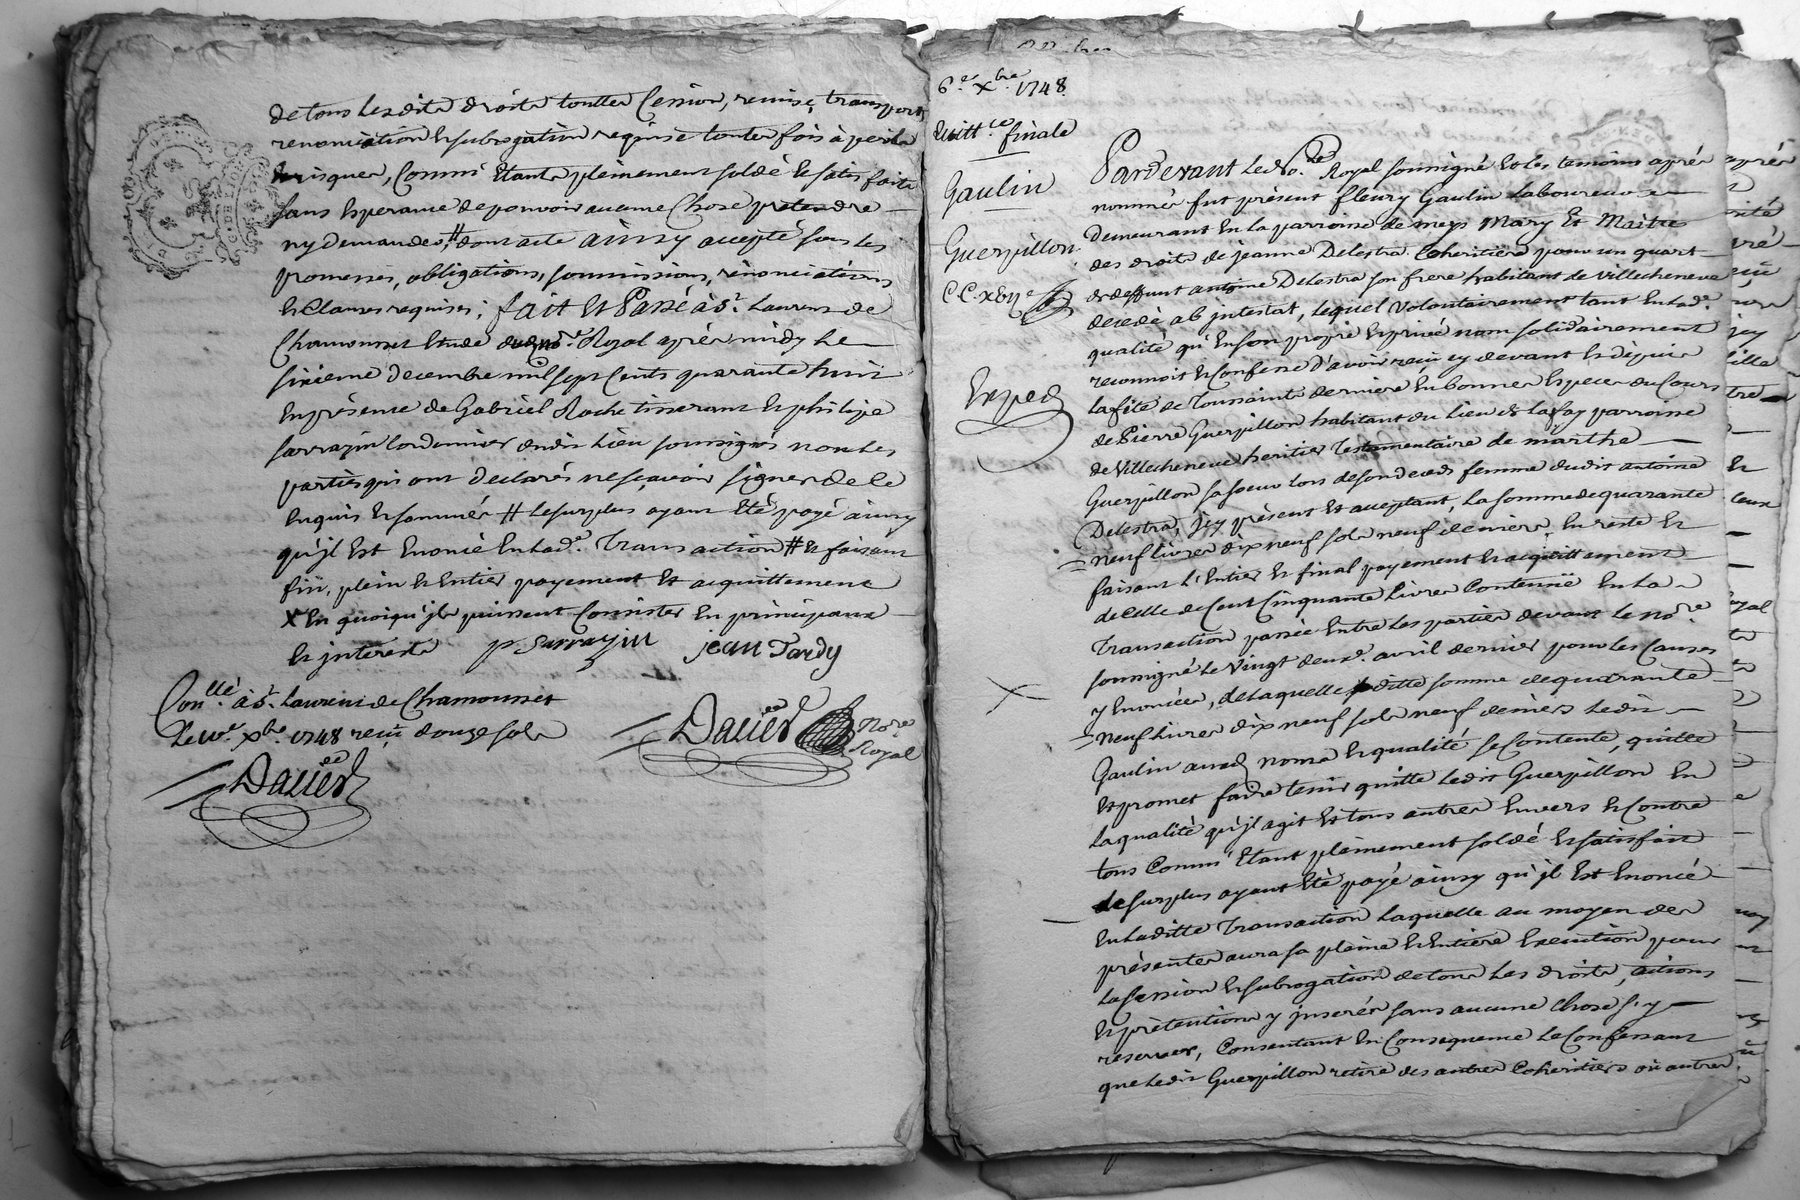 de tous lesdits droits touttes Cession, remise, transport,
renonciation et subrogation requise toutes fois à perils
et risques, Comm' Etants pleinement soldé et satisfaits
sans Esperance de pouvoir aucune Chose pretendre
ny demander, # dont acte ainsy accepté sous les
promesses, obligations, soumissions, rénonciations
et Clauses requises; fait et Passé à St. Laurens de
Chamousset Etude dud no.re Royal après midy le
sixieme decembre mil sept cents quarante huit
En présence de Gabriel Roche tisserant et philipe
sarrazin Cordonnier dudit Lieu soussignés non les
parties qui ont declarés ne sçavoir signer de ce
Enquis et sommés # Le surplus ayant Eté payé ainsy
qu'jl Est Enoncé En lad.e Transaction # et faisant
fin, plein et Entier payement et acquittement
X En quoiqu'jls puissent Consister En principaux
et jnterests p Sarrazin jean Tardy
Con.llé à St. Laurens de Chamousset
Le xbre 1748 reçu douze sols
Dacier No.re
Royal
Dacier
6.e X.bre 1748
quitt.ce finale
Gaulin
Guerpillon
Exped
Pardevant Le No.re Royal soussigné et les temoins après
nommés fut présent fleury Gaulin Laboureur
demeurant En la parroisse de meys Mary Et Maitre
des droits de jeanne Delestra Coheritiere pour un quart
de deffunt antoine Delestra son frere habitant de Villecheneve
decedé ab jntestat, Lequel Volontairement tant En lad.e
qualité qu'En son propre et privé nom solidairement
reconnoit et Confesse D'avoir reçu cy devant et depuis
la fête de Toussaints derniere En bonnes Especes du Cours
de Pierre Guerpillon habitant du lieu de Lafay parroisse
de Villecheneve heritier Testamentaire de marthe
Guerpillon sa soeur Lors de son deces femme dudit antoine
Delestra, jcy présent et acceptant, La somme de quarante
neuf Livres dix neuf sols neuf deniers En reste et
faisant L'Entier et final payement et acquittement
de Celle de Cent Cinquante Livres Contenüe En La
Transaction passée Entre les parties devant Le No.re
soussigné Le Vingt deux.e avril dernier pour les Causes
y Enoncées, de Laquelle ditte somme de quarante
neuf Livres dix neuf sols neuf deniers Ledit
Gaulin auxd noms et qualité se Contente, quitte
et promet faire tenir quitte Ledit Guerpillon En
La qualité qu'jl agit et tous autres Envers et Contre
tous Comm' Etant pleinement soldé et satisfait
Le surplus ayant Eté payé ainsy qu'jl Est Enoncé
En Laditte Transaction Laquelle au moyen des
présentes aura sa pleine et Entiere Execution pour
La Cession et subrogation de tous Les droits, actions
et prétentions y jnserés sans aucune Chose s'y
reserver, Consentant En Consequence Le Confessant
que Ledit Guerpillon retire des autres Coheritiers ou autres